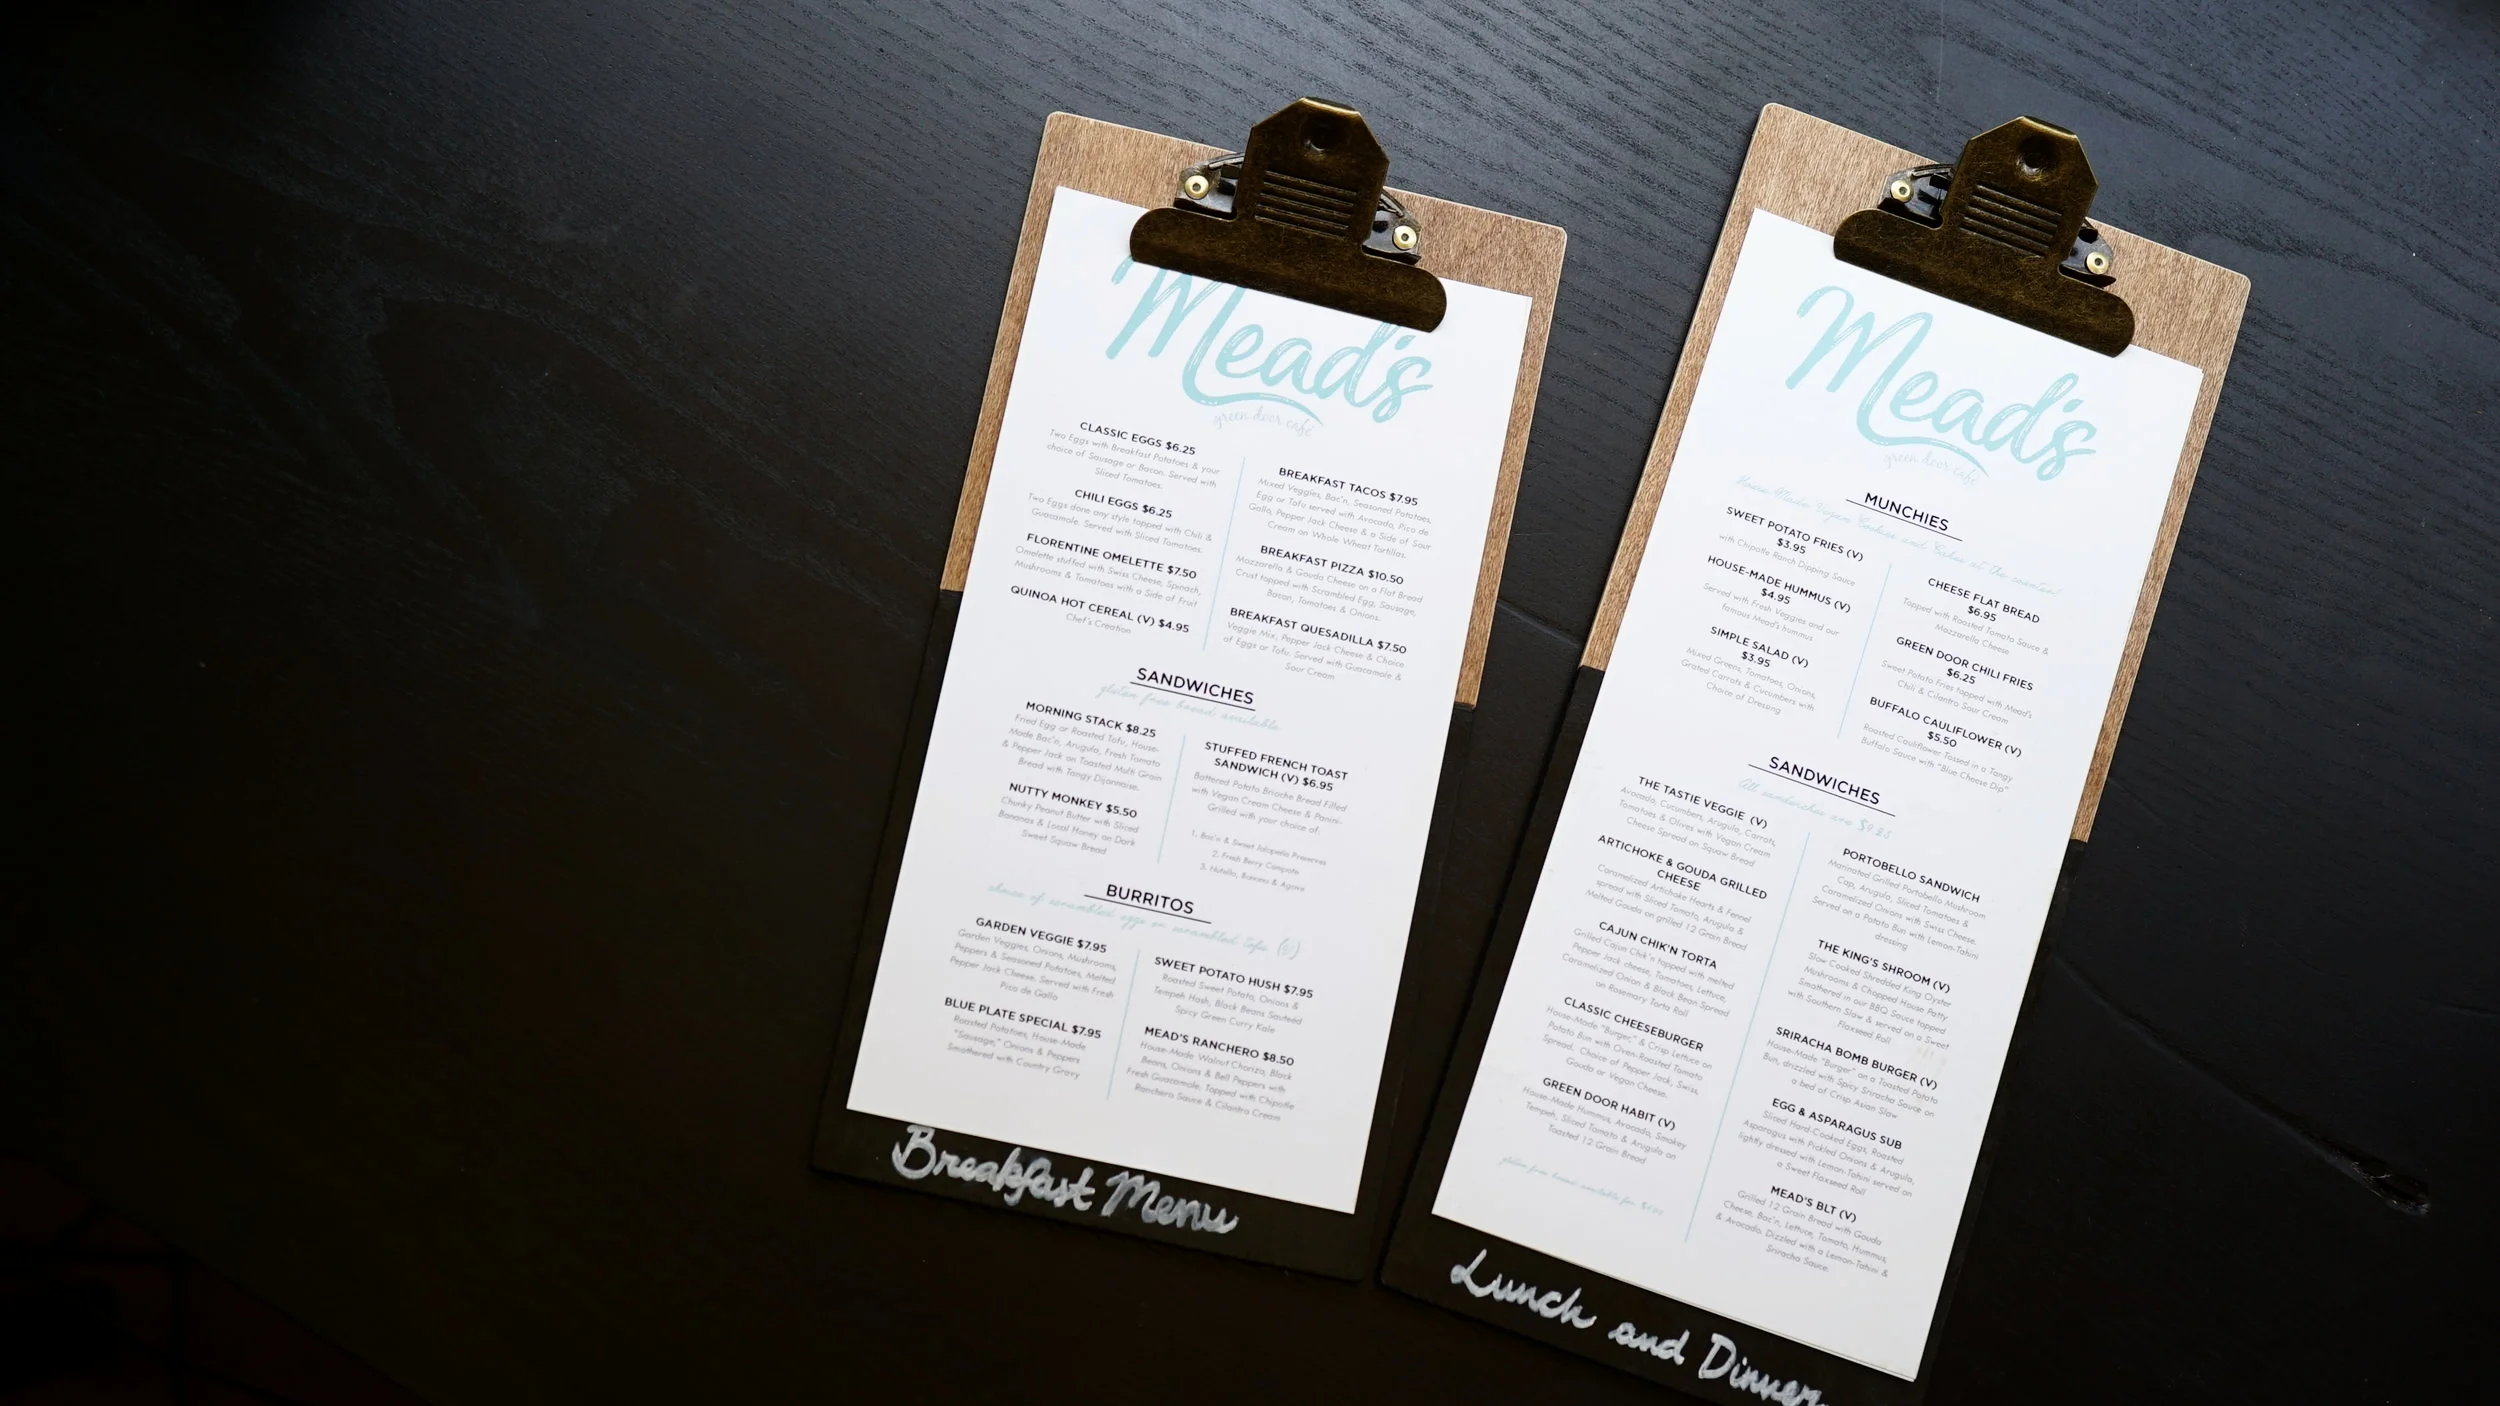 Mead's
green door café
CLASSIC EGGS $6.25
Two Eggs with Breakfast Potatoes & your
choice of Sausage or Bacon. Served with
Sliced Tomatoes.
CHILI EGGS $6.25
Two Eggs done any style topped with Chili &
Guacamole. Served with Sliced Tomatoes.
FLORENTINE OMELETTE $7.50
Omelette stuffed with Swiss Cheese, Spinach,
Mushrooms & Tomatoes with a Side of Fruit
QUINOA HOT CEREAL (V) $4.95
Chef's Creation
BREAKFAST TACOS $7.95
Mixed Veggies, Bac'n, Seasoned Potatoes,
Egg or Tofu served with Avocado, Pico de
Gallo, Pepper Jack Cheese & a Side of Sour
Cream on Whole Wheat Tortillas.
BREAKFAST PIZZA $10.50
Mozzarella & Gouda Cheese on a Flat Bread
Crust topped with Scrambled Egg, Sausage,
Bacon, Tomatoes & Onions.
BREAKFAST QUESADILLA $7.50
Veggie Mix, Pepper Jack Cheese & Choice
of Eggs or Tofu. Served with Guacamole &
Sour Cream
SANDWICHES
gluten free bread available
MORNING STACK $8.25
Fried Egg or Roasted Tofu, House-
Made Bac'n, Arugula, Fresh Tomato
& Pepper Jack on Toasted Multi Grain
Bread with Tangy Dijonnaise.
NUTTY MONKEY $5.50
Chunky Peanut Butter with Sliced
Bananas & Local Honey on Dark
Sweet Squaw Bread
STUFFED FRENCH TOAST
SANDWICH (V) $6.95
Battered Potato Brioche Bread Filled
with Vegan Cream Cheese & Panini-
Grilled with your choice of:
1. Bac'n & Sweet Jalapeño Preserves
2. Fresh Berry Compote
3. Nutella, Banana & Agave
BURRITOS
choice of scrambled eggs or scrambled tofu (v)
GARDEN VEGGIE $7.95
Garden Veggies, Onions, Mushrooms,
Peppers & Seasoned Potatoes, Melted
Pepper Jack Cheese. Served with Fresh
Pico de Gallo
BLUE PLATE SPECIAL $7.95
Roasted Potatoes, House-Made
"Sausage," Onions & Peppers
Smothered with Country Gravy
SWEET POTATO HUSH $7.95
Roasted Sweet Potato, Onions &
Tempeh Hash, Black Beans Sautéed
Spicy Green Curry Kale
MEAD'S RANCHERO $8.50
House-Made Walnut Chorizo, Black
Beans, Onions & Bell Peppers with
Fresh Guacamole, Topped with Chipotle
Ranchero Sauce & Cilantro Cream
Breakfast Menu
Mead's
green door café
MUNCHIES
House-Made Vegan Cookies and Cakes at the counter!
SWEET POTATO FRIES (V)
$3.95
with Chipotle Ranch Dipping Sauce
HOUSE-MADE HUMMUS (V)
$4.95
Served with Fresh Veggies and our
famous Mead's hummus
SIMPLE SALAD (V)
$3.95
Mixed Greens, Tomatoes, Onions,
Grated Carrots & Cucumbers with
Choice of Dressing
CHEESE FLAT BREAD
$6.95
Topped with Roasted Tomato Sauce &
Mozzarella Cheese
GREEN DOOR CHILI FRIES
$6.25
Sweet Potato Fries topped with Mead's
Chili & Cilantro Sour Cream
BUFFALO CAULIFLOWER (V)
$5.50
Roasted Cauliflower Tossed in a Tangy
Buffalo Sauce with "Blue Cheese Dip"
SANDWICHES
All sandwiches are $9.25
THE TASTIE VEGGIE (V)
Avocado, Cucumbers, Arugula, Carrots,
Tomatoes & Olives with Vegan Cream
Cheese Spread on Squaw Bread
ARTICHOKE & GOUDA GRILLED
CHEESE
Caramelized Artichoke Hearts & Fennel
spread with Sliced Tomato, Arugula &
Melted Gouda on grilled 12 Grain Bread
CAJUN CHIK'N TORTA
Grilled Cajun Chik'n topped with melted
Pepper Jack cheese, Tomatoes, Lettuce,
Caramelized Onion & Black Bean Spread
on Rosemary Torta Roll
CLASSIC CHEESEBURGER
House-Made "Burger," & Crisp Lettuce on
Potato Bun with Oven-Roasted Tomato
Spread, Choice of Pepper Jack, Swiss,
Gouda or Vegan Cheese.
GREEN DOOR HABIT (V)
House-Made Hummus, Avocado, Smokey
Tempeh, Sliced Tomato & Arugula on
Toasted 12 Grain Bread
gluten free bread available for
PORTOBELLO SANDWICH
Marinated Grilled Portobello Mushroom
Cap, Arugula, Sliced Tomatoes &
Caramelized Onions with Swiss Cheese.
Served on a Potato Bun with Lemon-Tahini
dressing
THE KING'S SHROOM (V)
Slow Cooked Shredded King Oyster
Mushrooms & Chopped House Patty
Smothered in our BBQ Sauce topped
with Southern Slaw & served on a Sweet
Flaxseed Roll
SRIRACHA BOMB BURGER (V)
House-Made "Burger" on a Toasted Potato
Bun, drizzled with Spicy Sriracha Sauce on
a bed of Crisp Asian Slaw
EGG & ASPARAGUS SUB
Sliced Hard-Cooked Eggs, Roasted
Asparagus with Pickled Onions & Arugula,
lightly dressed with Lemon-Tahini served on
a Sweet Flaxseed Roll
MEAD'S BLT (V)
Grilled 12 Grain Bread with Gouda
Cheese, Bac'n, Lettuce, Tomato, Hummus,
& Avocado. Dizzled with a Lemon-Tahini &
Sriracha Sauce.
Lunch and Dinner